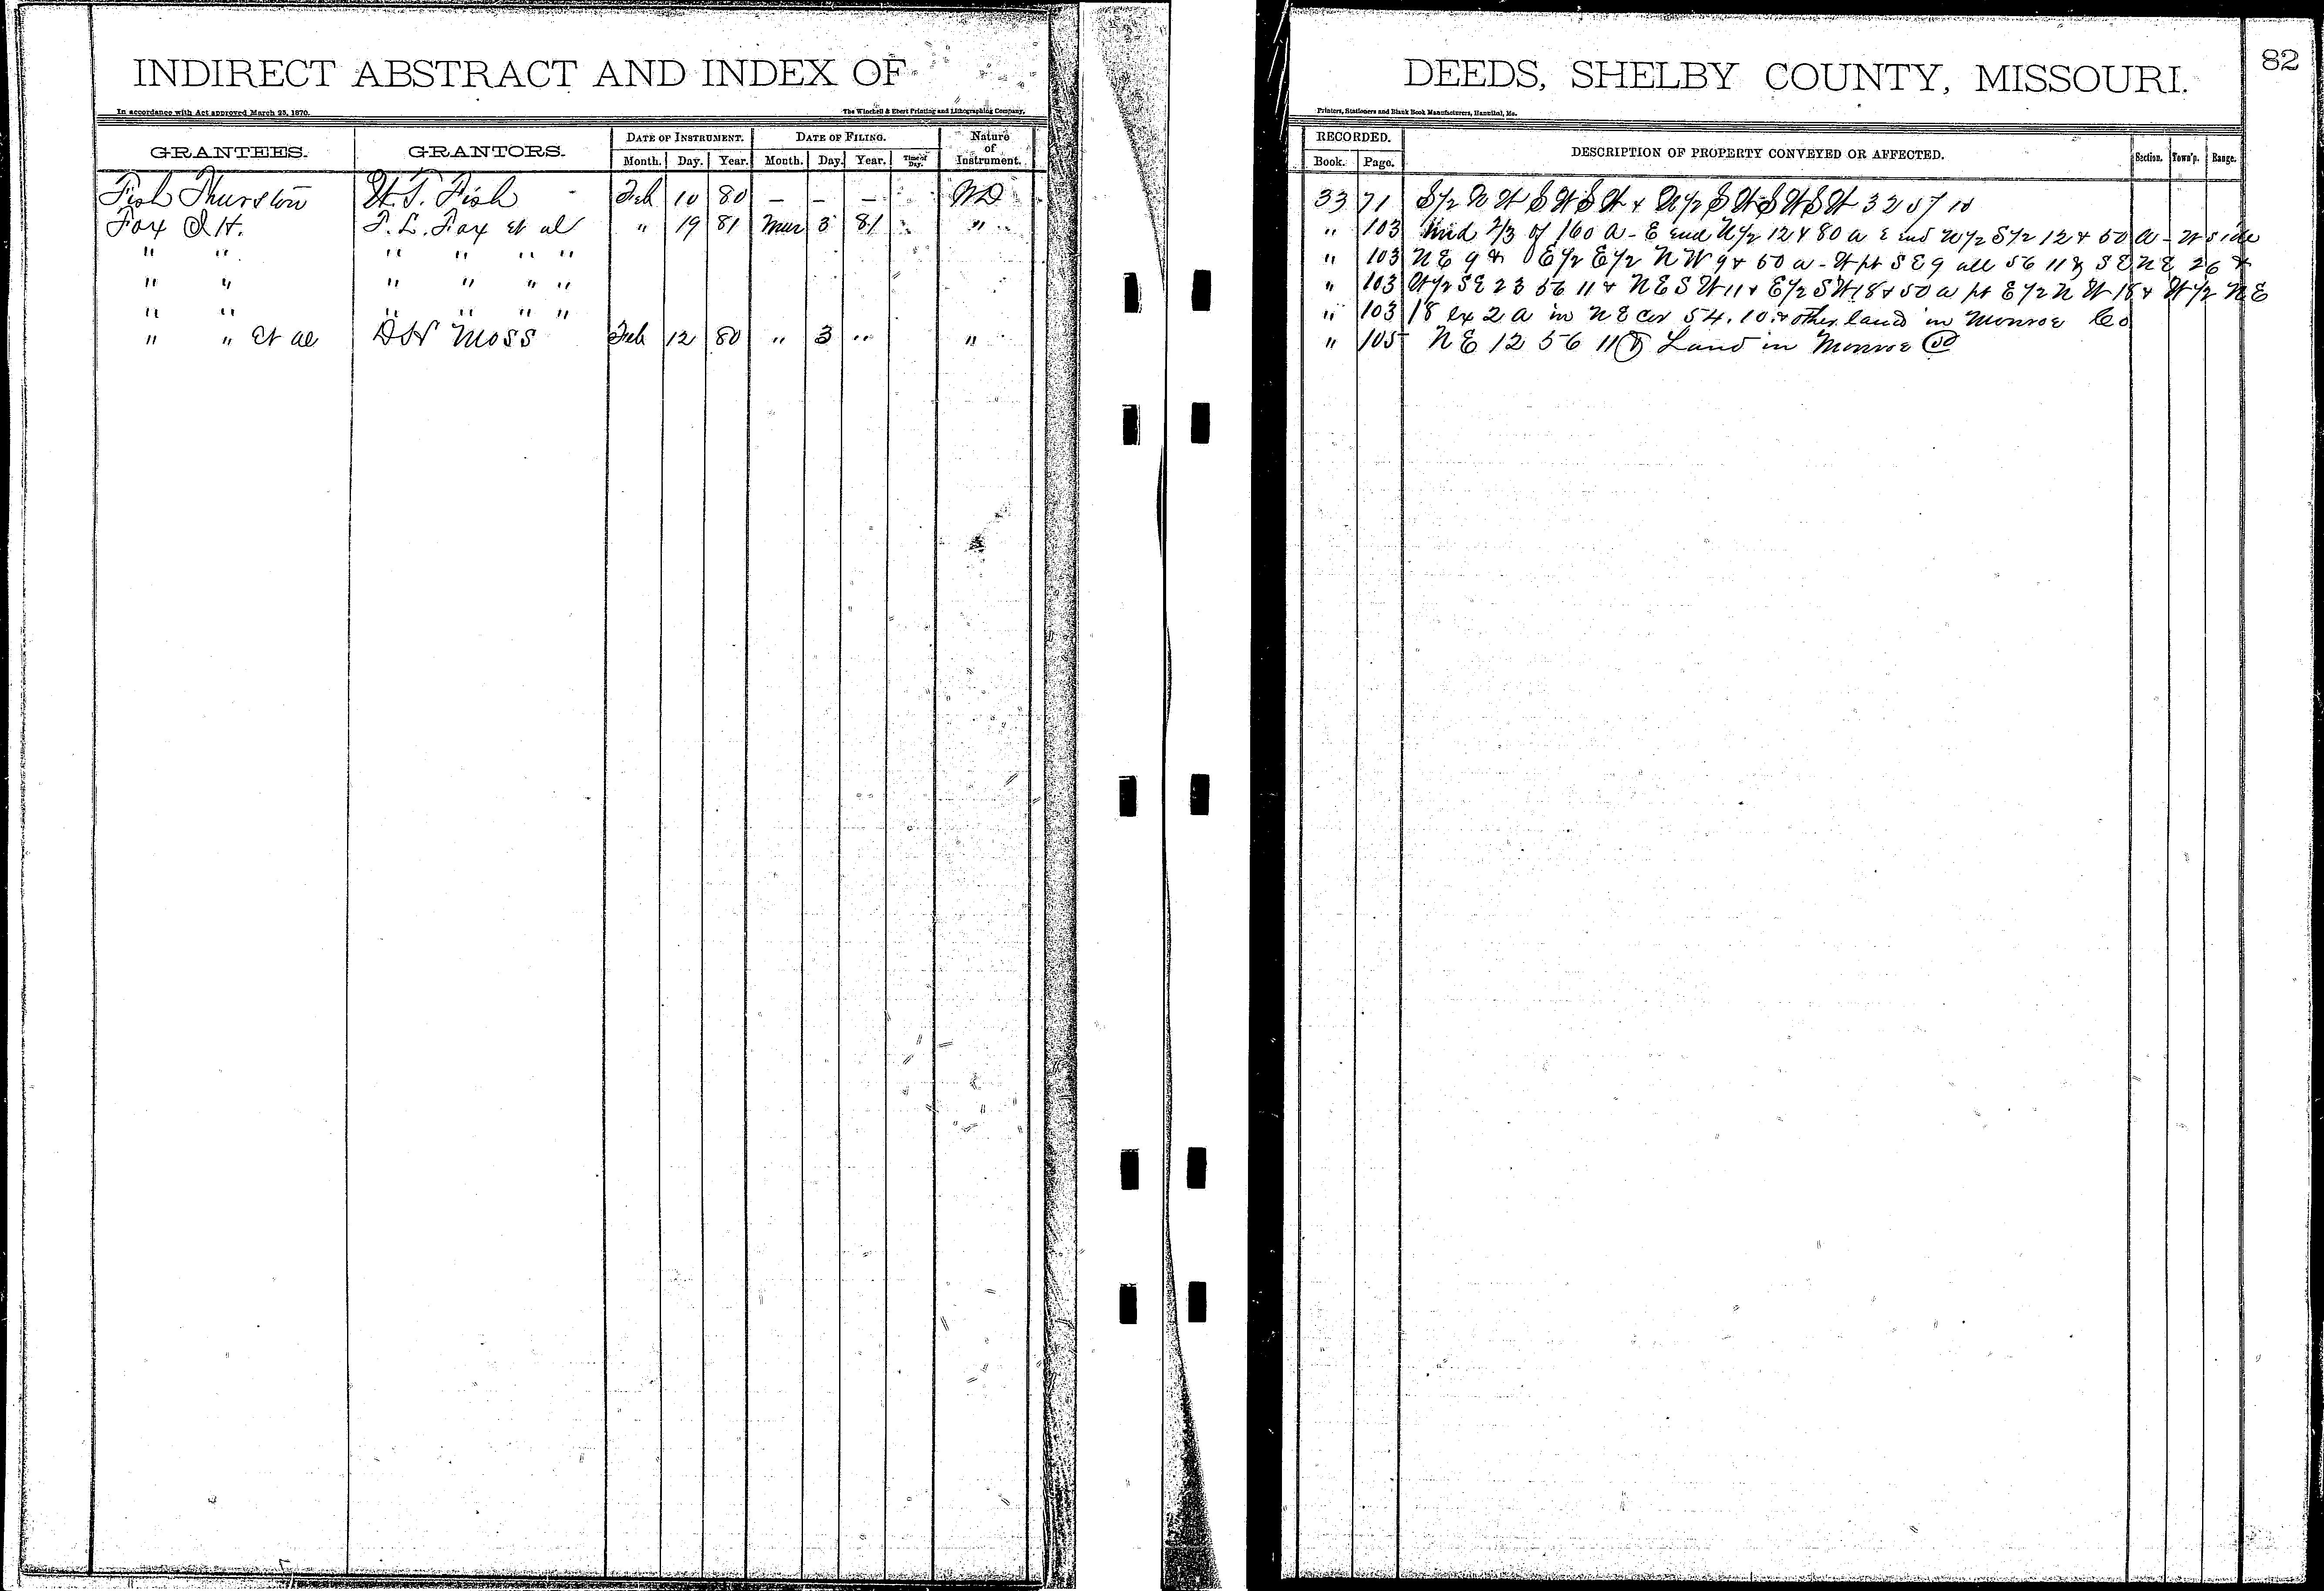 INDIRECT ABSTRACT AND INDEX OF
In accordance with Act approved March 25, 1870.
The Winchell & Ebert Printing and Lithographing Company,
GRANTEES. GRANTORS. DATE OF INSTRUMENT. DATE OF FILING. Nature of Instrument.
Month. Day. Year. Month. Day. Year. Time of Day.
Fish Thurston W. T. Fish Feb 10 80 – – – WD
Fox D H. F. L. Fox et al " 19 81 Mar 3 81 "
" " " " " "
" " " " " "
" " " " " "
" " et al D H Moss Feb 12 80 " 3 " "
DEEDS, SHELBY COUNTY, MISSOURI.
82
Printers, Stationers and Blank Book Manufacturers, Hannibal, Mo.
RECORDED. DESCRIPTION OF PROPERTY CONVEYED OR AFFECTED. Section. Town'p. Range.
Book. Page.
33 71 S/2 N W S W S W & N/2 S W S W S W 32 57 10
" 103 Und 2/3 of 160 a - E end N/2 12 & 80 a E end N/2 S/2 12 & 50 a - W side
" 103 N E 9 & E/2 E/2 N W 9 & 50 a - W pt S E 9 all 56 11 & S E N E 26 &
" 103 W/2 S E 23 56 11 & N E S W 11 & E/2 S W 18 & 50 a pt E/2 N W 18 & W/2 N E
" 103 18 ex 2 a in N E cor 54. 10. & other land in Monroe Co
" 105 N E 12 56 11 & Land in Monroe Co